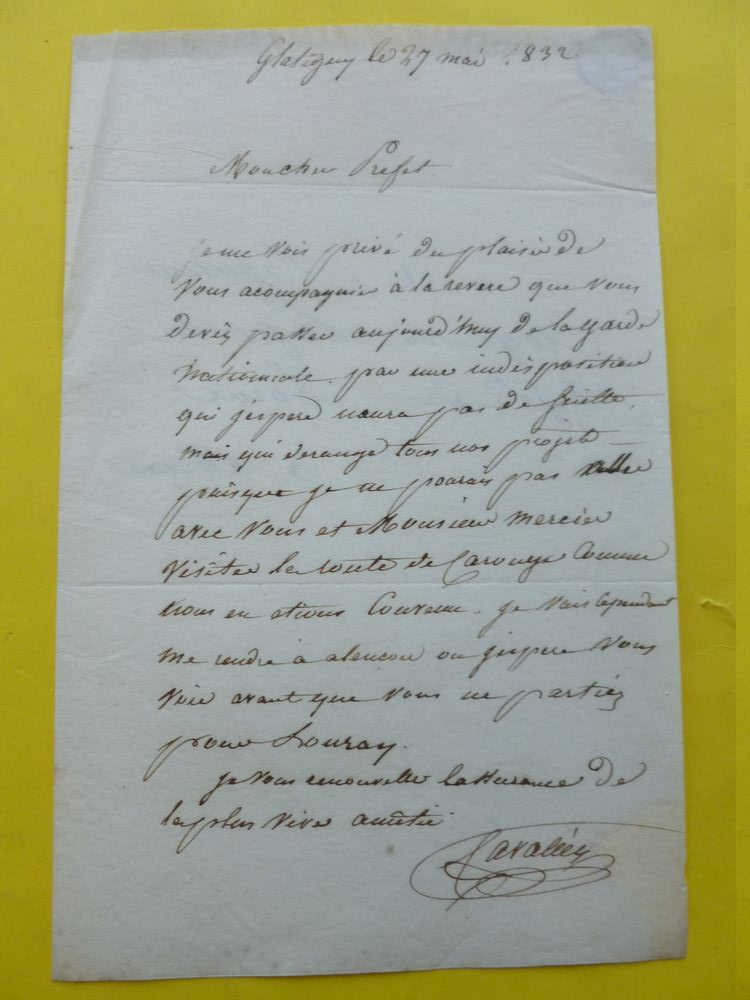 Glatigny le 27 mai 1832
Mon cher Prefet
je me vois privé du plaisir de
Vous acompagner à la revere que Vous
deviez passer aujourd'huy de la garde
nationale. par une indisposition
qui j'espere naura pas de suitte,
mais qui derange tous nos projets
puisque je ne pourais pas aller
avec Vous et Monsieur mercier
visiter la route de Carouge Comme
nous en etions Convenu. je vais Cependant
me rendre à alencon ou j'espere Vous
voir avant que Vous ne partiez
pour Lonray.
je Vous renouvelle lassurance de
la plus vive amitié